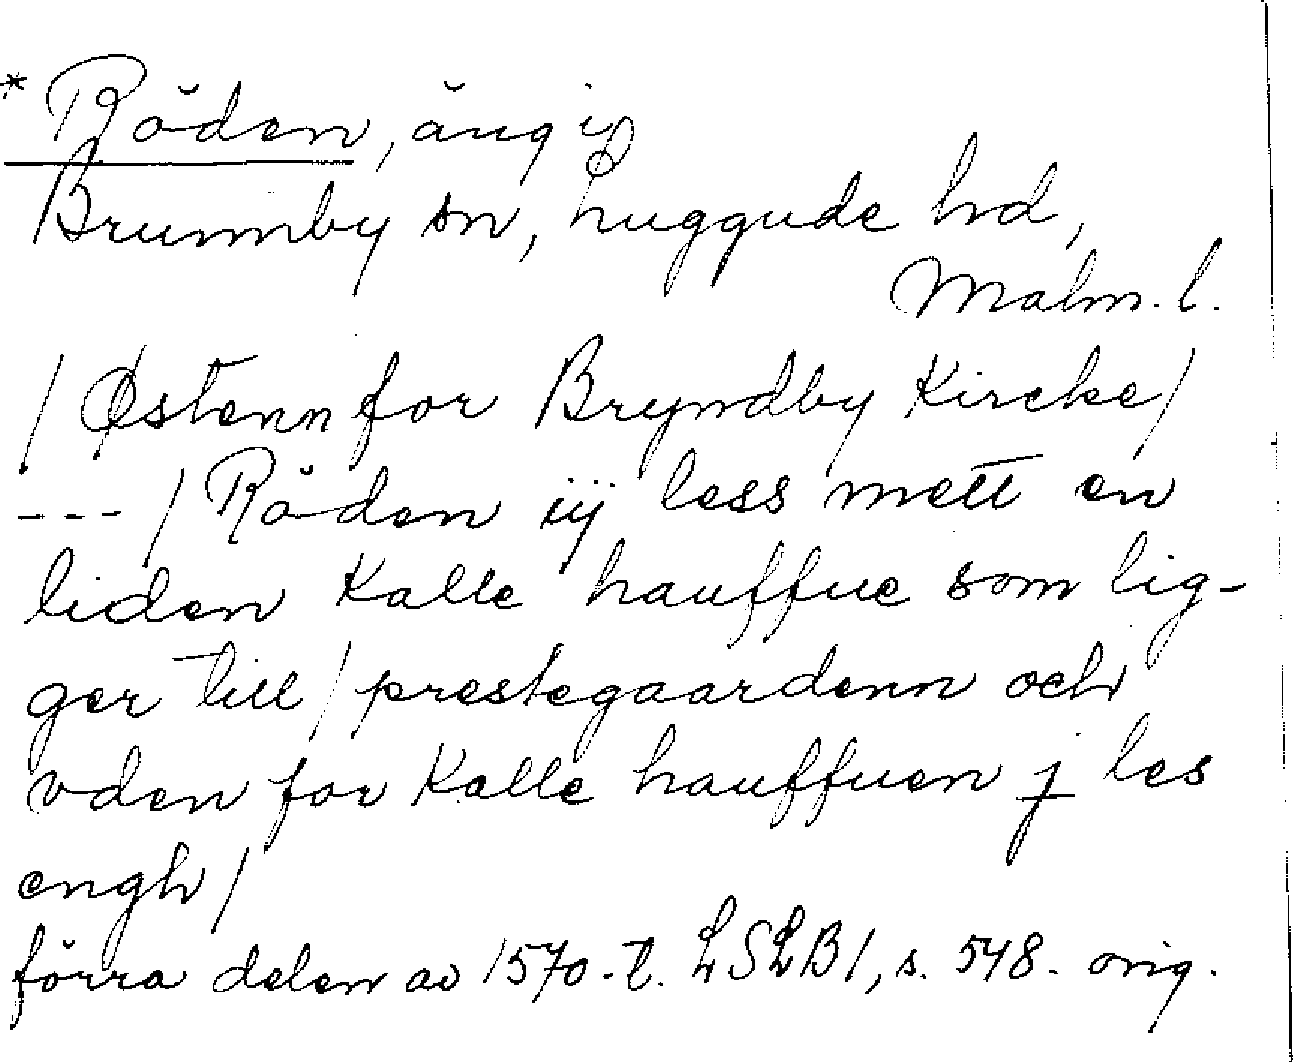 * Röden, äng i
Brunnby sn, Luggude hd,
Malm. l.
/ Østenn for Bryndby Kircke /
--- / Röden iij less mett en
liden Kalle hauffue som lig-
ger till / prestegaardenn och
vden for Kalle hauffuen j les
engh /
förra delen av 1570-t. LSLB 1, s. 548. orig.